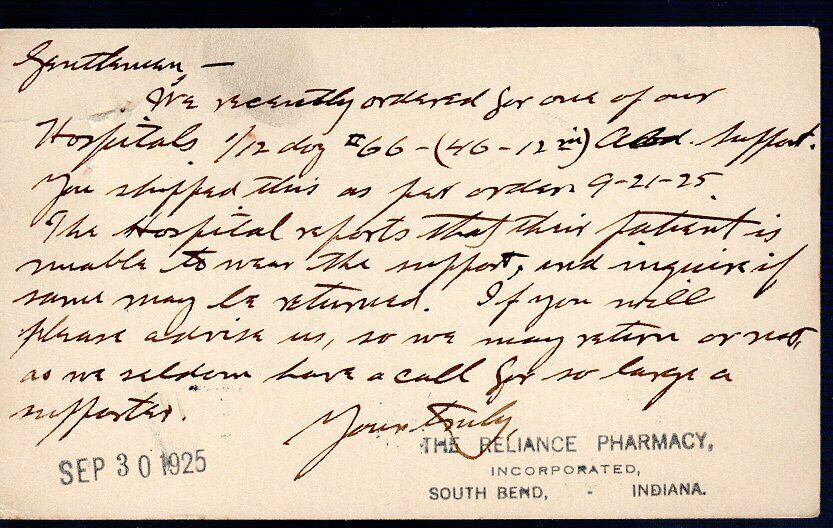 Gentlemen, —
We recently ordered for one of our
Hospitals 1/12 doz #66-(46-12 in) Abd. Support.
You shipped this as per order 9-21-25
The Hospital reports that their patient is
unable to wear the support, and inquire if
same may be returned. If you will
please advise us, so we may return or not,
as we seldom have a call for so large a
supporter.
Yours truly,
THE RELIANCE PHARMACY,
INCORPORATED,
SOUTH BEND, - INDIANA.
SEP 30 1925